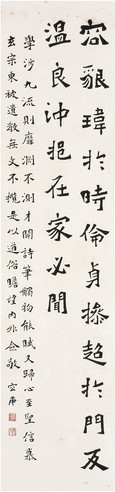 容貌瑋於時倫貞操超於門友
溫良沖挹在家必聞
學涉九流則靡淵不測才關詩筆觸物能賦又歸心至聖信慕
玄宗東被遺教無文不攬是以道俗瞻望內外僉敬